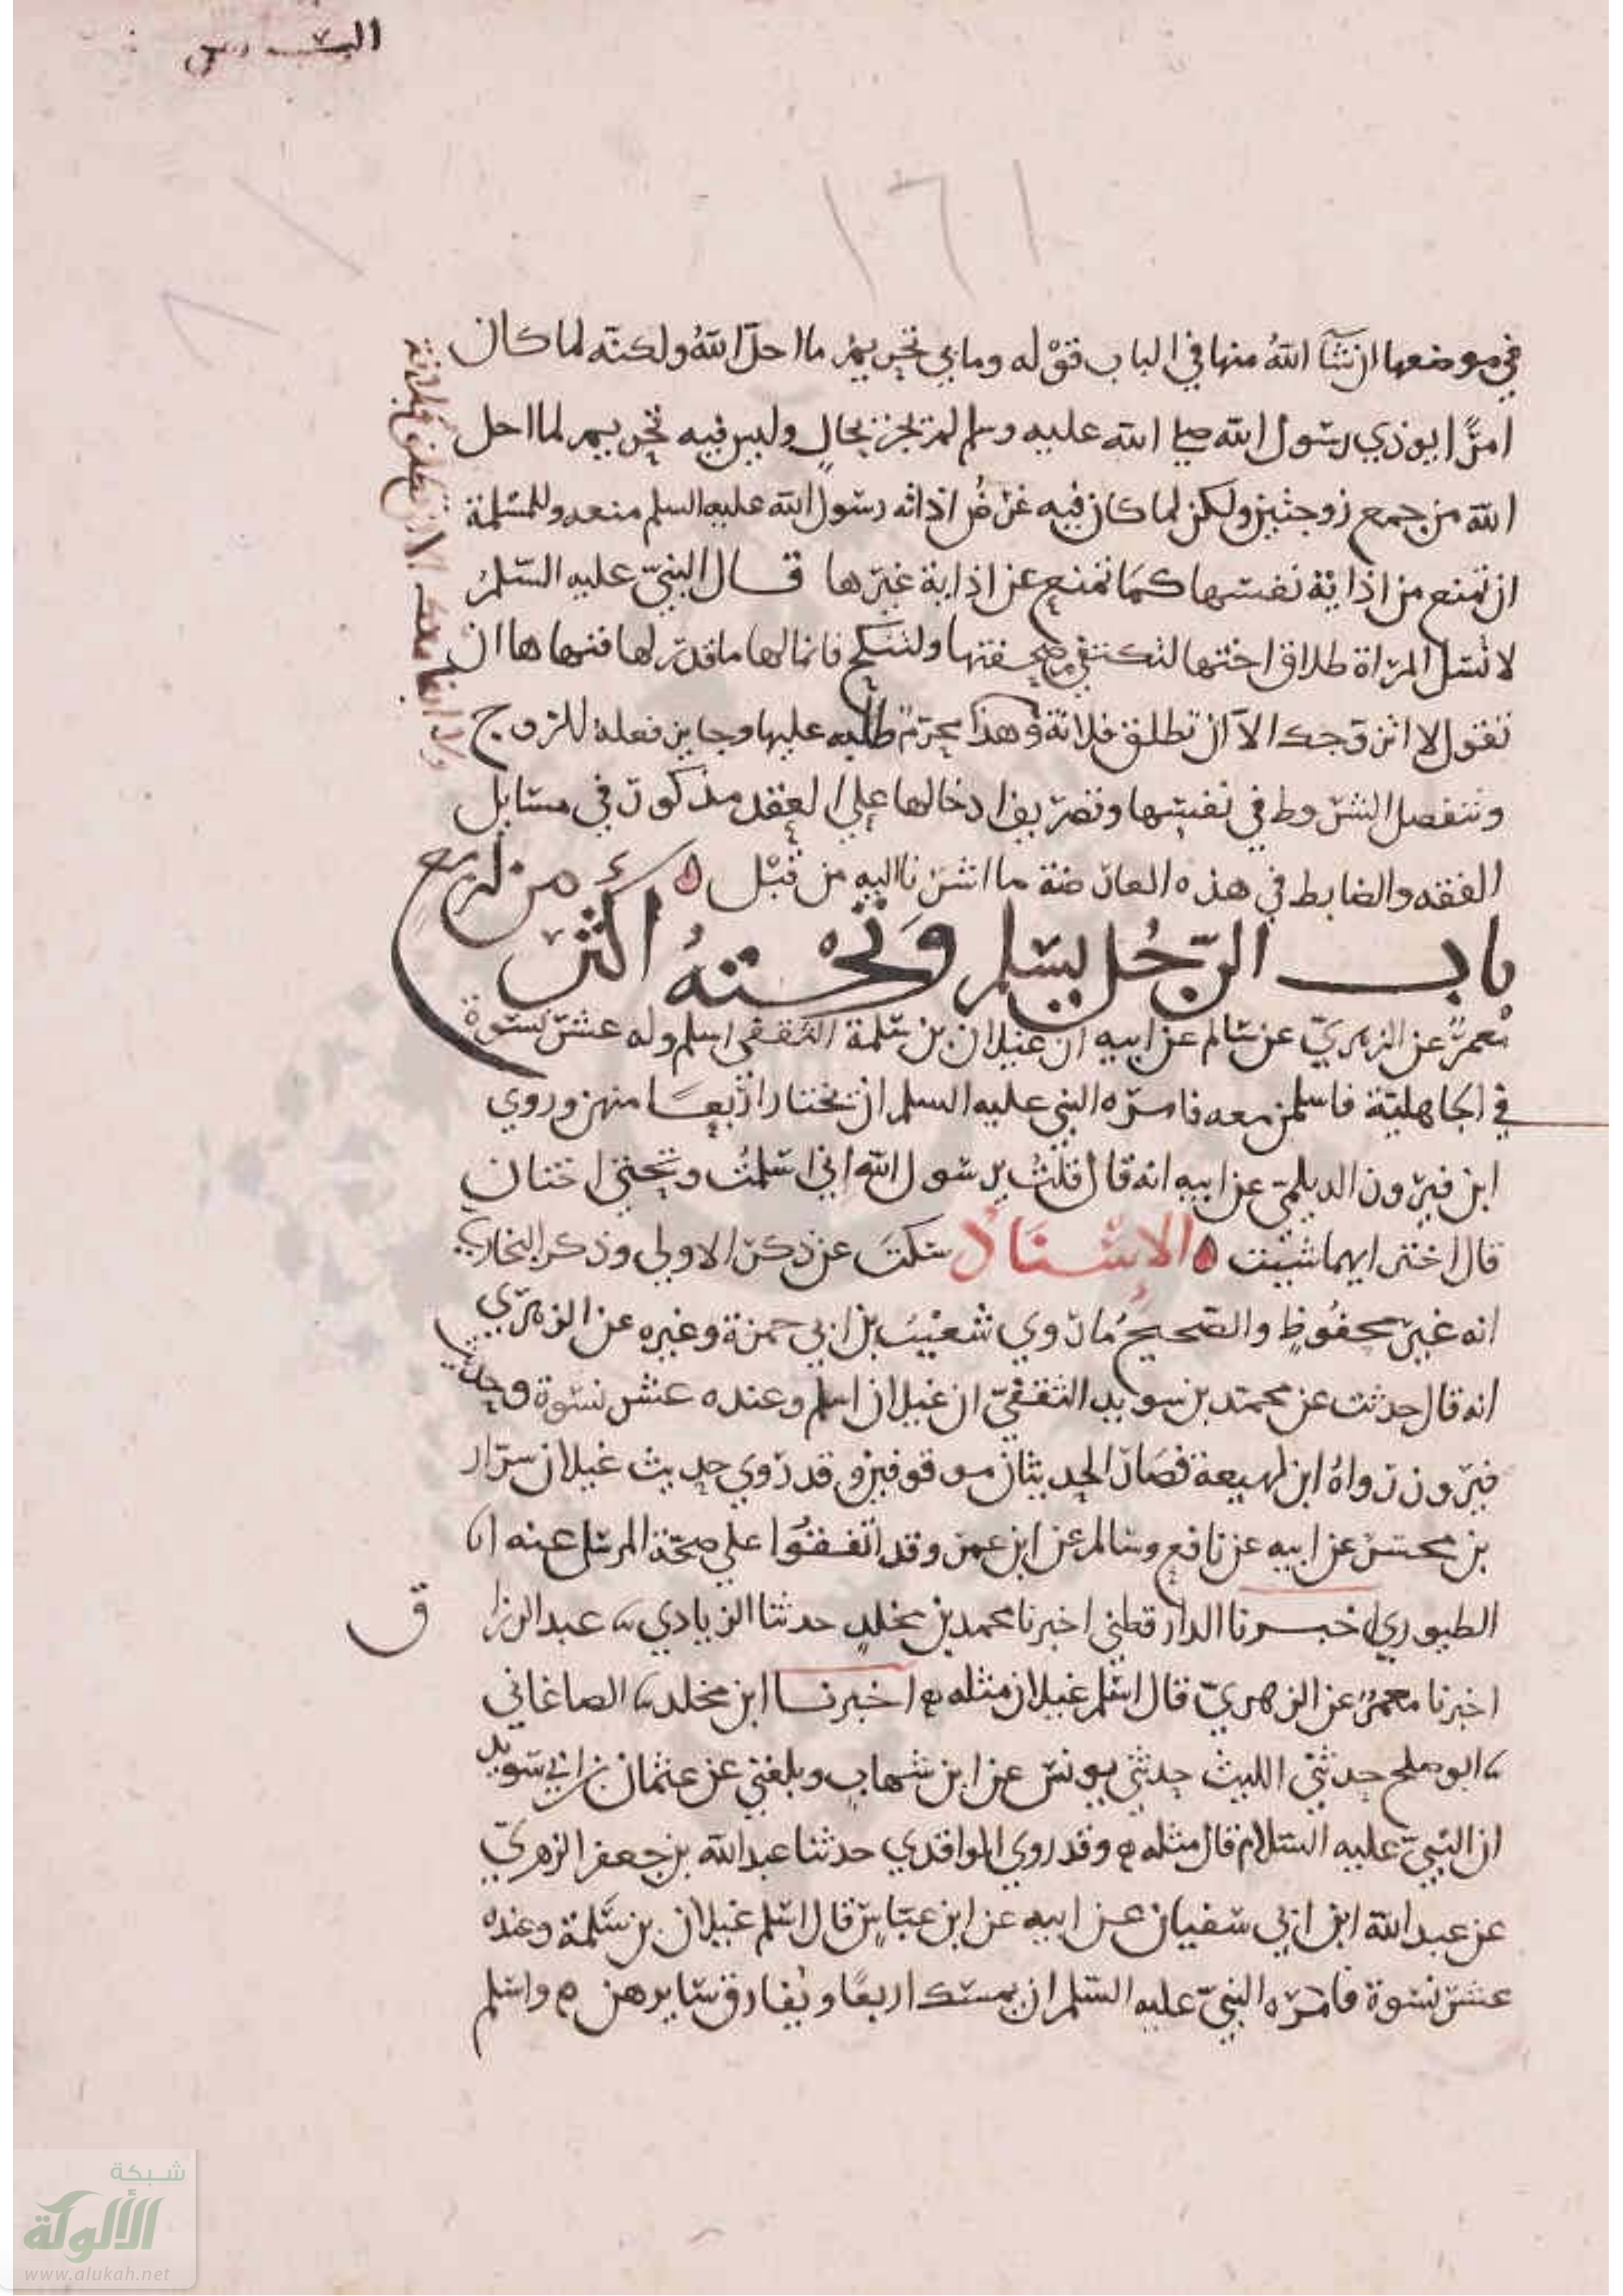 السادس
١٦١
في موضعها ان شآ الله منها في الباب قوْله وما بي تحريمُ ما احلّ اللهُ ولكنّه لما كان
امرًا يوذي رسول الله صلى الله عليه وسلم لم يجز بحالٍ وليس فيه تحريم لما احل
الله من جمع زوجتين ولكن لما كان فيه غرضُ اذاته رسول الله عليه السلم منعه وللمسلمة
ان تمنع من اذاية نفسها كما تمنع عن اذاية غيرها قال النبيّ عليه السّلمُ
لا تسل المرأة طلاق اختها لتكتفي صحفتها ولتنكح فانما لها ما قدّر لها فنهاها ان
تقول لا اتزوّجك الا ان تطلق فلانة وهذا محرّمٌ طلبه عليها وجايز فعله للزوج
وتفصل الشروط في نفسها وتصريف ادخالها على العقد مذكور في مسايل
الفقه والضابط في هذه العارضة ما اشرنا اليه من قبْل
باب الرّجُل يسْلم وَتحْتهُ اكثر من اربع
معمرٌ عن الزهريّ عن سالم عن ابيه ان غيلان بن سلمة الثقفي اسلم وله عشر نسوة
في الجاهليّة فاسلمن معه فامره النبي عليه السلم ان يختار ارْبعًا منهن وروي
ابن فيروز الديلميّ عن ابيه انه قال قلتُ يرسول الله اني اسْلمْتُ وتحتي اختان
قال اختر ايهما شيت الاسْنَادُ سكتَ عن ذكر الاولى وذكر البخاري
انه غير محفُوظٍ والصّحيحُ ما روي شعَيْبَ بن ابي حمزة وغيره عن الزهرّي
انه قال حدثت عن محمّد بن سويد الثقفيّ ان غيلان اسلم وعنده عشر نسْوة وحديث
فيروز رواهُ ابن لهيعة فصَار الحديثان موقوفين وقد رَوي حديث غيلان سرّار
بن محشر عن ابيه عن نافع وسالم عن ابن عمر وقد اتّفقُوا على صحّة المرسل عنه انا
الطيوري اخبرنا الدارقطني اخبرنا محمد بن مخلدٍ حدثنا الزيادي نا عبد الرزا
ق
اخبرنا معمرٌ عن الزهريّ قال اسْلم غيلان مثله ه اخبرنا ابن مخلد نا الصاغاني
نا ابو صلح حدثني الليث حدثني يونس عن ابن شهاب وبلغني عن عثمان بن ابي سويد
ان النبيّ عليه السّلام قال مثله ه وقد روي الواقدي حدثنا عبد الله بن جعفر الزهريّ
عن عبد الله ابن ابي سفيان عن ابيه عن ابن عبّاسٍ قال اسْلم غيلان بن سَلمة وعنده
عشر نسْوة فامرَه النبيّ عليه السّلم ان يمسك اربعًا ويُفارق سَايرهن ه واسْلم
شبكة
الألوكة
www.alukah.net